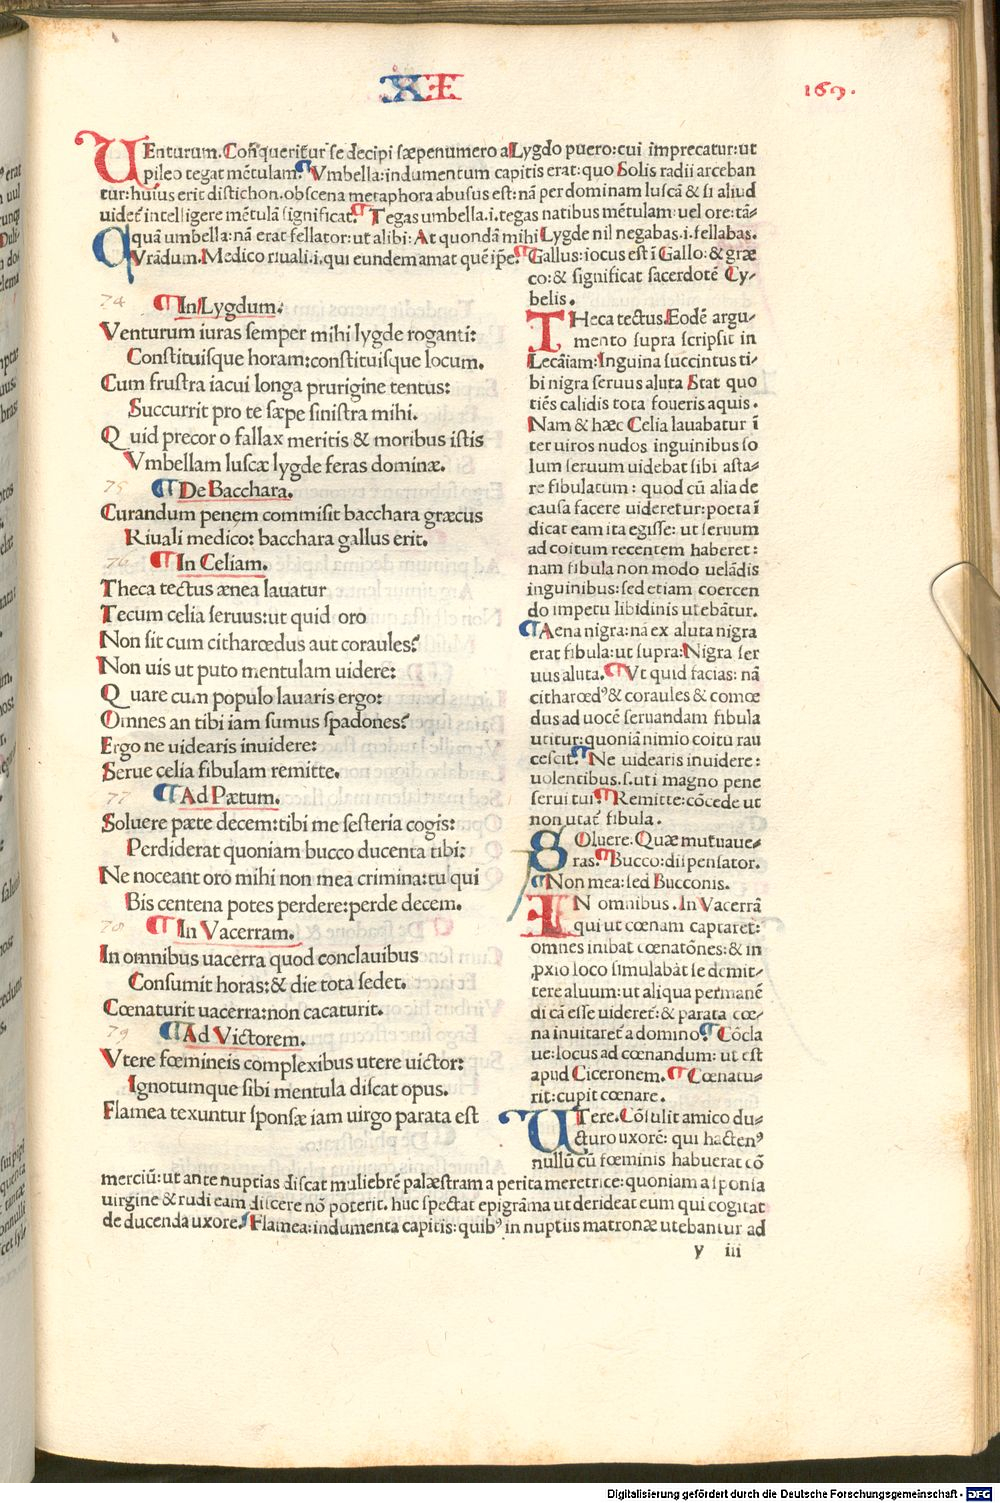 XI
169.
VEnturum. Coñqueritur se decipi sæpenumero a Lygdo puero: cui imprecatur: ut
pileo tegat mẽtulam. ¶ Vmbella: indumentum capitis erat: quo Solis radii arceban
tur: huius erit distichon. obscena metaphora abusus est: nã per dominam luscã & si aliud
uidet̃ intelligere mẽtulã significat. ¶ Tegas umbella .i. tegas natibus mẽtulam: uel ore: tã-
quã umbella: nã erat fellator: ut alibi: At quondã mihi Lygde nil negabas .i. fellabas.
QVrãdum. Medico riuali .i. qui eundem amat quẽ ip̃e. ¶ Gallus: iocus est ĩ Gallo: & græ
co: & significat sacerdotẽ Cy-
belis.
74 ¶ In Lygdum.
Venturum iuras semper mihi lygde roganti:
Constituisque horam: constituisque locum.
Cum frustra iacui longa prurigine tentus:
Succurrit pro te sæpe sinistra mihi.
Quid precor o fallax meritis & moribus istis
Vmbellam luscæ lygde feras dominæ.
75 ¶ De Bacchara.
Curandum penem commisit bacchara græcus
Riuali medico: bacchara gallus erit.
76 ¶ In Celiam.
Theca tectus ænea lauatur
Tecum celia seruus: ut quid oro
Non sit cum citharœdus aut coraules?
Non uis ut puto mentulam uidere:
Quare cum populo lauaris ergo:
Omnes an tibi iam sumus spadones?
Ergo ne uidearis inuidere:
Serue celia fibulam remitte.
77 ¶ Ad Pætum.
Soluere pæte decem: tibi me sesteria cogis:
Perdiderat quoniam bucco ducenta tibi:
Ne noceant oro mihi non mea crimina: tu qui
Bis centena potes perdere: perde decem.
78 ¶ In Vacerram.
In omnibus uacerra quod conclauibus
Consumit horas: & die tota sedet.
Cœnaturit uacerra: non cacaturit.
79 ¶ Ad Victorem.
Vtere fœmineis complexibus utere uictor:
Ignotumque sibi mentula discat opus.
Flamea texuntur sponsæ iam uirgo parata est
THeca tectus. Eodẽ argu-
mento supra scripsit in
Lecãiam: Inguina succintus ti-
bi nigra seruus aluta Stat quo
tiẽs calidis tota foueris aquis.
Nam & hæc Celia lauabatur ĩ
ter uiros nudos inguinibus so
lum seruum uidebat sibi asta-
re fibulatum: quod cũ alia de
causa facere uideretur: poeta ĩ
dicat eam ita egisse: ut seruum
ad coitum recentem haberet:
nam fibula non modo uelãdis
inguinibus: sed etiam coercen
do impetu libidinis utebãtur.
¶ Aena nigra: nã ex aluta nigra
erat fibula: ut supra: Nigra ser
uus aluta. ¶ Vt quid facias: nã
citharœdꝰ & coraules & comœ
dus ad uocẽ seruandam fibula
utitur: quoniã nimio coitu rau
cescit. ¶ Ne uidearis inuidere:
uolentibus .s. uti magno pene
serui tui. ¶ Remitte: cõcede ut
non utat̃ fibula.
SOluere. Quæ mutuaue-
ras. ¶ Bucco: dispensator.
¶ Non mea: sed Bucconis.
IN omnibus. In Vacerrã
qui ut cœnam captaret:
omnes inibat cœnatõnes: & in
ꝓxio loco simulabat se demit-
tere aluum: ut aliqua permanẽ
di cã esse uideret̃: & parata cœ-
na inuitaret̃ a domino. ¶ Cõcla
ue: locus ad cœnandum: ut est
apud Ciceronem. ¶ Cœnatu-
rit: cupit cœnare.
VTere. Cõsulit amico du-
cturo uxorẽ: qui hactenꝰ
nullũ cũ fœminis habuerat cõ
merciũ: ut ante nuptias discat muliebrẽ palæstram a perita meretrice: quoniam a sponsa
uirgine & rudi eam discere nõ poterit. huc spectat epigrãma ut derideat eum qui cogitat
de ducenda uxore. ¶ Flamea: indumenta capitis: quibꝰ in nuptiis matronæ utebantur ad
y iii
Digitalisierung gefördert durch die Deutsche Forschungsgemeinschaft - DFG